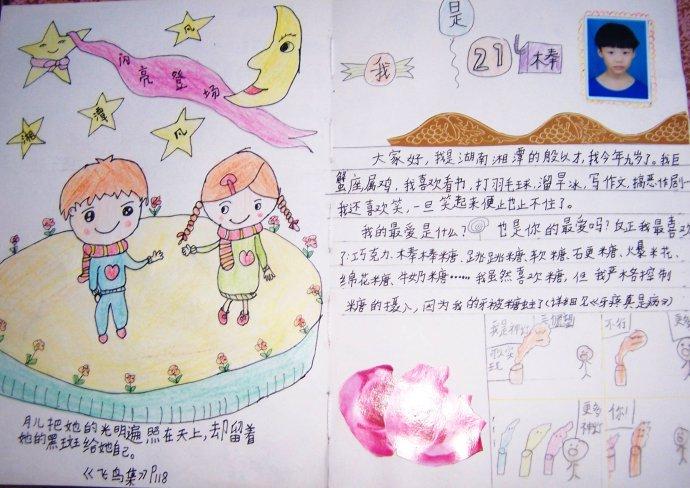 闪亮登场
凡
潭
湘
凡
月儿把她的光明遍照在天上,却留着
她的黑斑给她自己。
《飞鸟集》P118
我
是
21
棒
大家好,我是湖南湘潭的殷以才,我今年九岁了。我巨
蟹座属鸡,我喜欢看书,打羽毛球,溜旱冰,写作文,搞恶作剧……
我还喜欢笑,一旦笑起来便止也止不住了。
我的最爱是什么?也是你的最爱吗?反正我最喜欢
了:巧克力、木奉木奉糖、跳跳糖、软糖、石更糖、火爆米花、
绵花糖、牛奶糖……我虽然喜欢糖,但我严格控制
糖的摄入,因为我的牙被糖蛀了(详细见《牙疼真是病》)
我是神灯
不行
更多
更多
神灯
你!